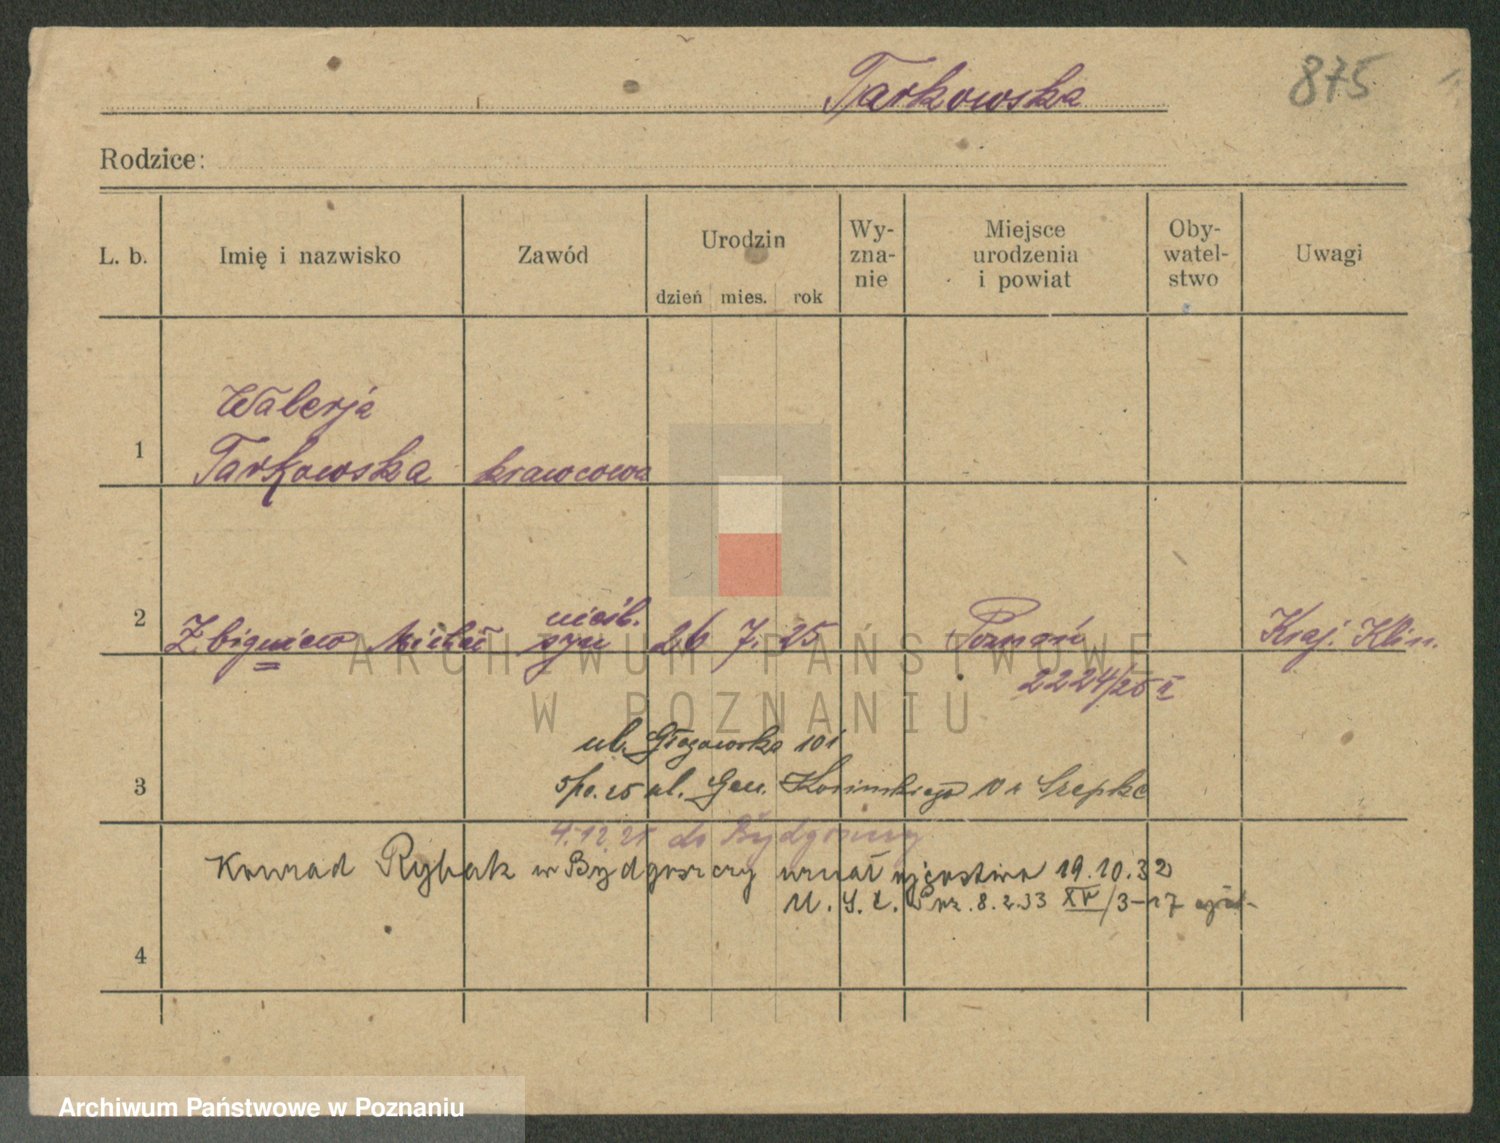 Tarkowska
875
Rodzice:
L. b.
Imię i nazwisko
Zawód
Urodzin
dzień mies. rok
Wy-
zna-
nie
Miejsce
urodzenia
i powiat
Oby-
watel-
stwo
Uwagi
1
Walerja
Tarkowska krawcowa
2
nieśl.
Zbigniew Michał syn 26 7. 25 Poznań Kraj. Klin.
2224/25 II
ARCHIWUM PAŃSTWOWE
W POZNANIU
3
ul. Głogowska 101
ul. Gen. Kosińskiego 10 u Szepke
4.12.25 do Bydgoszczy
Konrad Rybak w Bydgoszczy uznał ojcostwo 19.10.32
U. S. C. 8.2.33 XV/3-17
4
Archiwum Państwowe w Poznaniu